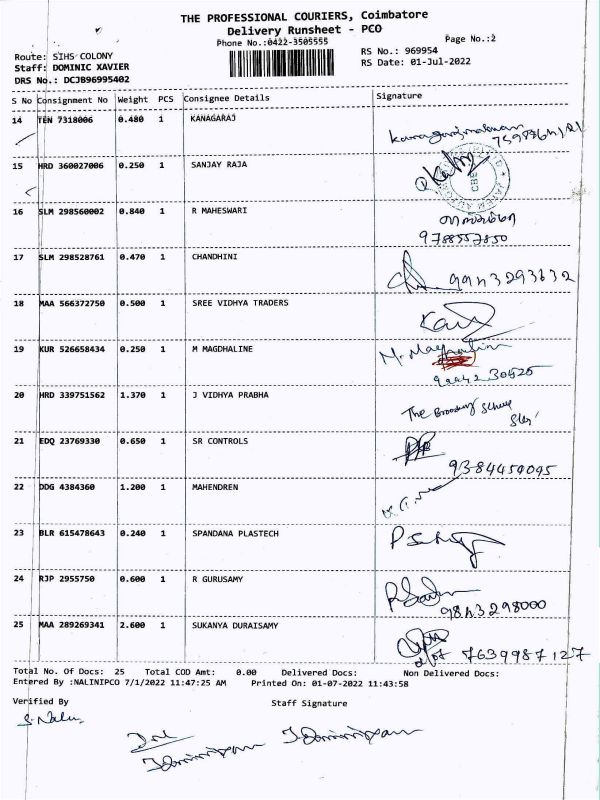 THE PROFESSIONAL COURIERS, Coimbatore
Delivery Runsheet - PCO
Phone No.:0422-3505555
Page No.:2
Route: SIHS COLONY
RS No.: 969954
Staff: DOMINIC XAVIER
RS Date: 01-Jul-2022
DRS No.: DCJB96995402
S No Consignment No Weight PCS Consignee Details Signature
14 TEN 7318006 0.480 1 KANAGARAJ
15 HRD 360027006 0.250 1 SANJAY RAJA
16 SLM 298560002 0.840 1 R MAHESWARI
9788557850
17 SLM 298528761 0.470 1 CHANDHINI
9943293632
18 MAA 566372750 0.500 1 SREE VIDHYA TRADERS
19 KUR 526658434 0.250 1 M MAGDHALINE
M. Magdhaline
20 HRD 339751562 1.370 1 J VIDHYA PRABHA
The
21 EDQ 23769330 0.650 1 SR CONTROLS
9384454095
22 DDG 4384360 1.200 1 MAHENDREN
23 BLR 615478643 0.240 1 SPANDANA PLASTECH
24 RJP 2955750 0.600 1 R GURUSAMY
9843298000
25 MAA 289269341 2.600 1 SUKANYA DURAISAMY
7639987127
Total No. Of Docs: 25 Total COD Amt: 0.00 Delivered Docs: Non Delivered Docs:
Entered By :NALINIPCO 7/1/2022 11:47:25 AM Printed On: 01-07-2022 11:43:58
Verified By Staff Signature
S. Nalin